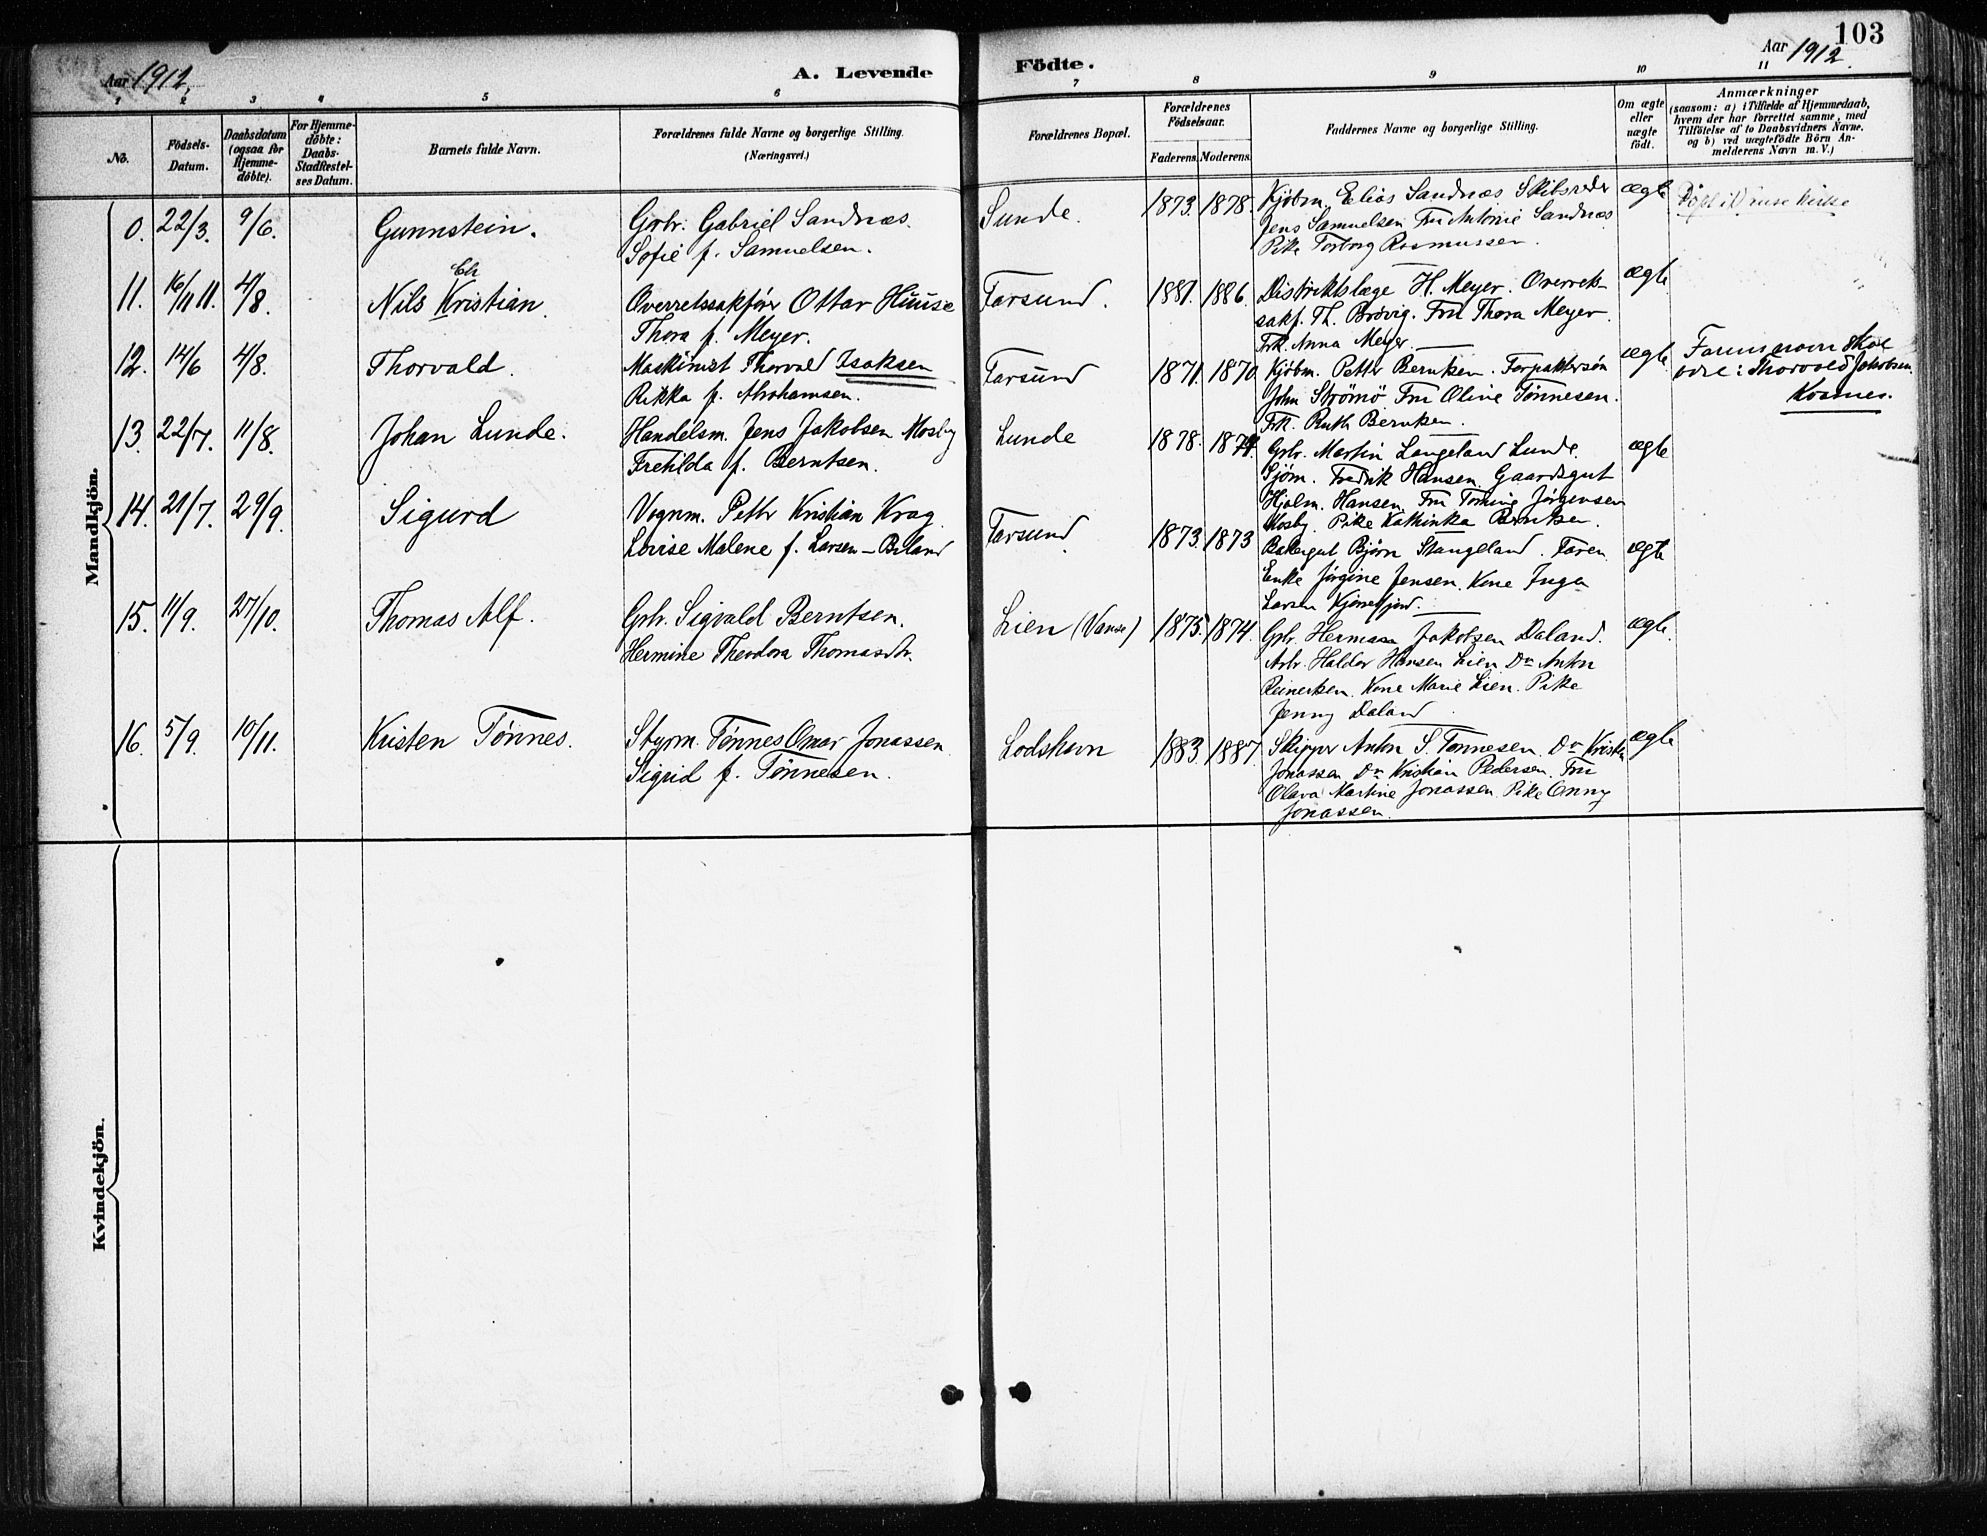 103
Aar 1912.
A. Levende
Födte.
Aar 1912.
1 2 3 4 5 6 7 8 9 10 11
No.
Födsels-
Datum.
Daabsdatum
(ogsaa for
Hjemme-
døbte).
For Hjemme-
døbte:
Daabs-
Stadfestel-
ses Datum.
Barnets fulde Navn.
Forældrenes fulde Navne og borgerlige Stilling.
(Næringsvei.)
Forældrenes Bopæl.
Forældrenes
Födselsaar.
Faderens. Moderens.
Faddernes Navne og borgerlige Stilling.
Om ægte
eller
uægte
födt.
Anmærkninger
(saasom: a) i Tilfælde af Hjemmedaab,
hvem der har forrettet samme, med
Tilføielse af to Daabsvidners Navne,
og b) ved uægtefödte Börn An-
melderens Navn m. V.)
Mandkjön.
0. 22/3. 9/6. Gunnstein. Grbr. Gabriel Sandnæs.
Sofie f. Samuelsen.
Sunde. 1873. 1878.
Kjøbm. Elias Sandnæs Skibsreder
Jens Samuelsen Fru Antonie Sandnæs
Pike Torborg Rasmussen.
ægte
11. 16/11 11. 4/8. Nils Kristian.
Ch
Overretssakfører Ottar Huuse
Thora f. Meyer.
Farsund. 1881. 1886.
Distriktslæge H. Meyer. Overrets-
sakf. Th. Brøvig. Fru Thora Meyer.
Frk. Anna Meyer.
ægte
12. 14/6 4/8. Thorvald.
Maskinist Thorvald Isaksen
Rikka f. Abrahamsen.
Farsund 1871. 1870
Kjøbm. Petter Berntsen. Forpaktersøn
John Strömö Fru Oline Tønnesen.
Frk. Ruth Berntsen.
ægte
Farens navn skal
være: Thorvald Jakobsen
Kosmes.
13. 22/7. 11/8. Johan Lunde.
Handelsm. Jens Jakobsen Mosby
Fretilda f. Berntsen.
Lunde 1878. 1874.
Grbr. Martin Langeland Lunde.
Sjøm. Fredrik Hansen. Gaardsgut
Hjalm. Hansen. Fru Tomine Jørgensen
Mosby. Pike Kathinka Berntsen.
ægte
14. 21/7. 29/9. Sigurd
Vognm. Petter Kristian Krag.
Lovise Malene f. Larsen-Briland
Farsund. 1873. 1873
Bakergut Bjørn Stangeland. Faren
Enke Jørgine Jensen. Kone Inga
Larsen Kjørrefjord.
ægte
15. 11/9. 27/10. Thomas Alf.
Grbr. Sigvald Berntsen.
Hermine Theodora Thomasdtr.
Lien (Vanse) 1875. 1874.
Grbr. Herman Jakobsen Daland.
Arbr. Haldor Hansen Lien Do Anton
Reinertsen. Kone Marie Lien. Pike
Jenny Daland
ægte.
16. 5/9. 10/11. Kristen Tønnes.
Styrm. Tønnes Omar Jonassen
Sigrid f. Tønnesen.
Lodshavn 1883. 1887.
Skipper Anton S. Tønnesen. Do Kristen
Jonassen Do Kristian Pedersen. Fru
Olava Martine Jonassen. Pike Anny
Jonassen.
ægte
Kvindekjön.